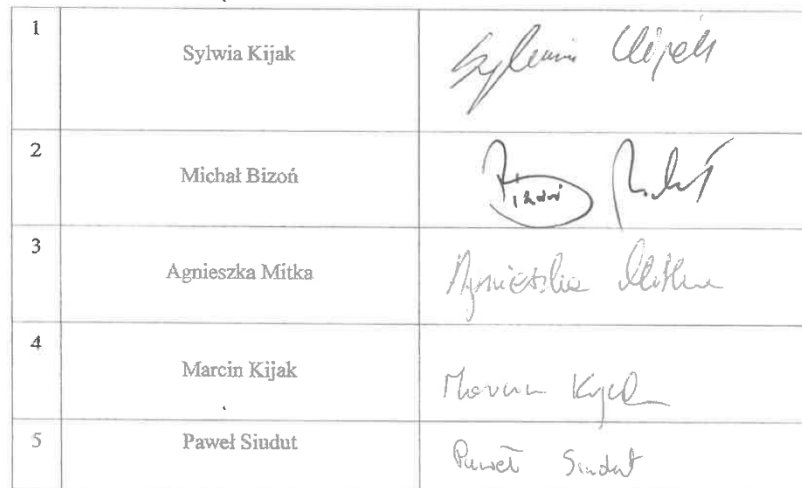 1 Sylwia Kijak Sylwia Kijak
2 Michał Bizoń Bizoń Michał
3 Agnieszka Mitka Agnieszka Mitka
4 Marcin Kijak Marcin Kijak
5 Paweł Siudut Paweł Siudut